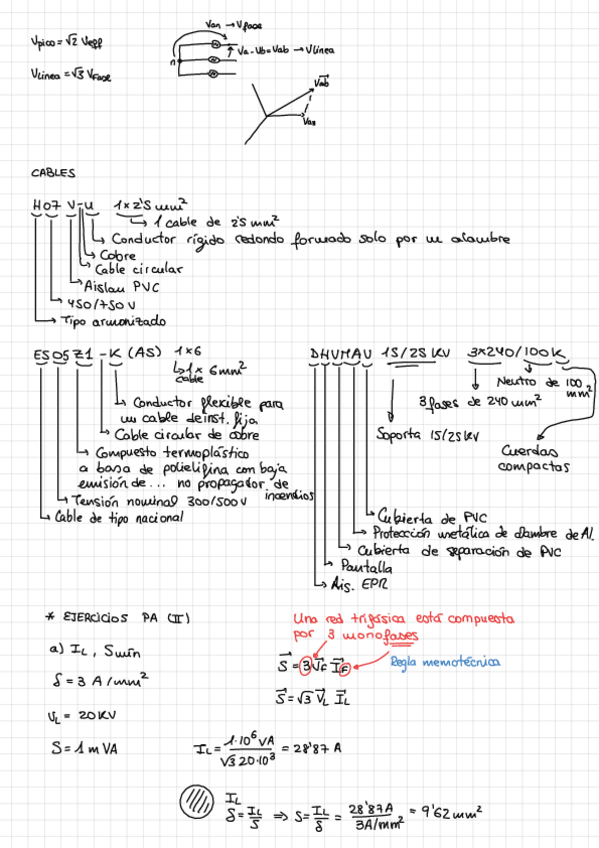 Van → Vfase
Vpico = √2 Veff
Va - Vb = Vab → Vlinea
n
Vlinea = √3 Vfase
Vab
Van
CABLES
H07 V-U 1 x 2'5 mm²
1 cable de 2'5 mm²
Conductor rígido redondo formado solo por un alambre
Cobre
Cable circular
Aislau PVC
450/750 V
Tipo armonizado
ES05Z1-K (AS) 1x6
1 x 6mm²
cable
Conductor flexible para
un cable de inst. fija
Cable circular de cobre
Compuesto termoplástico
a base de polielifina con baja
emisión de ... no propagador de
incendios
Tensión nominal 300/500 V
Cable de tipo nacional
DHVMAV 15/25 KV 3x240/100K
Neutro de 100 mm²
3 fases de 240 mm²
Soporta 15/25 KV
Cuerdas
compactas
Cubierta de PVC
Protección metálica de alambre de Al.
Cubierta de separación de PVC
Pantalla
Ais. EPR
* EJERCICIOS PA (II)
Una red trifásica está compuesta
por 3 monofases
a) IL, Smín
S = 3 VF IF
Regla memotécnica
δ = 3 A/mm²
S = √3 VL IL
UL = 20 KV
S = 1 mVA
IL = 1·10⁶ VA / √3 20·10³ = 28'87 A
IL
δ = IL/S ⇒ S = IL/δ = 28'87A / 3A/mm² = 9'62 mm²